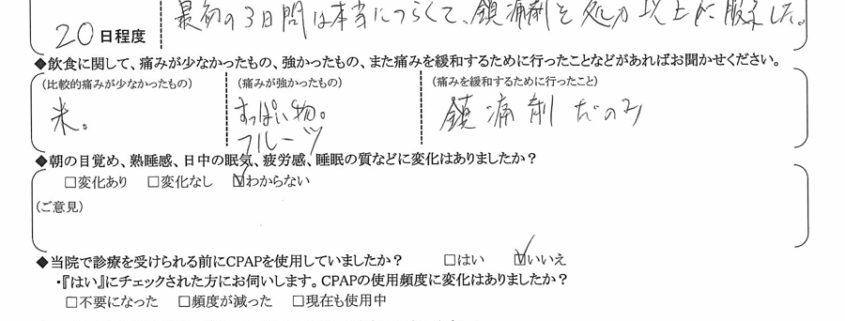 最初の3日間は本当につらくて、鎮痛剤を処方以上に服用した。
20日程度
◆飲食に関して、痛みが少なかったもの、強かったもの、また痛みを緩和するために行ったことなどがあればお聞かせください。
(比較的痛みが少なかったもの) (痛みが強かったもの) (痛みを緩和するために行ったこと)
米。 すっぱい物。 鎮痛剤だのみ
フルーツ
◆朝の目覚め、熟睡感、日中の眠気、疲労感、睡眠の質などに変化はありましたか?
□変化あり □変化なし ☑わからない
(ご意見)
◆当院で診療を受けられる前にCPAPを使用していましたか? □はい ☑いいえ
・『はい』にチェックされた方にお伺いします。CPAPの使用頻度に変化はありましたか?
□不要になった □頻度が減った □現在も使用中